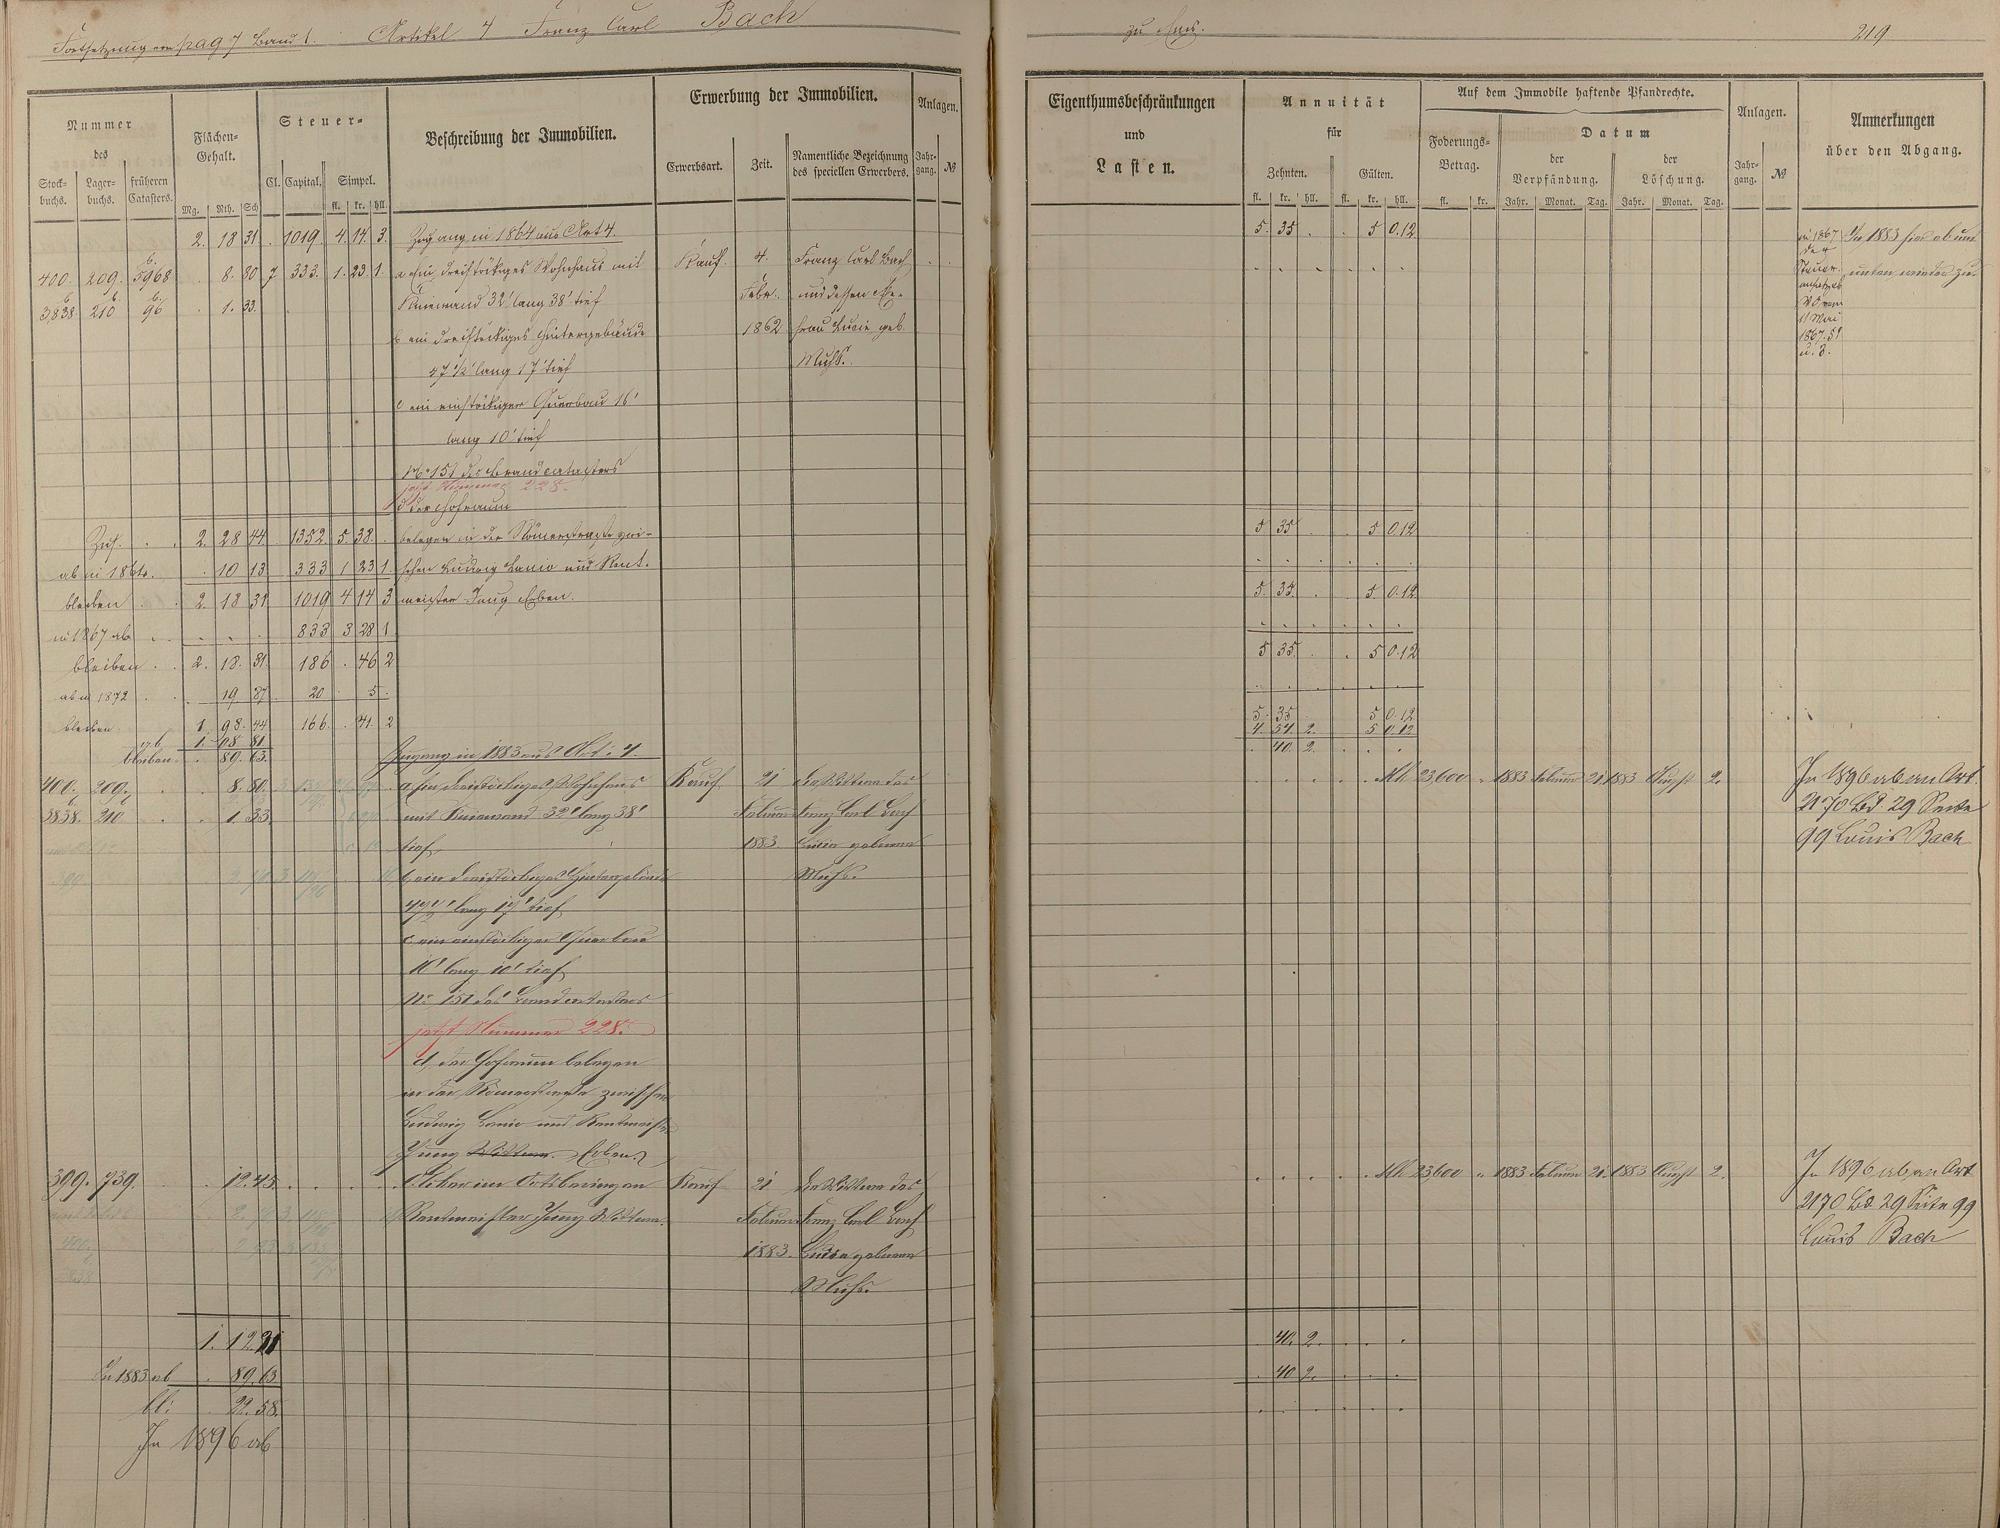 Fortsetzung von pag 7 Band 1. Artikel 4 Franz Carl Bach
zu Ems.
219
Nummer
des
Stock-
buchs.
Lager-
buchs.
früheren
Catasters.
Flächen-
Gehalt.
Mg. Rth. Sch
Steuer-
Cl. Capital. Simpel.
fl. kr. hll.
Beschreibung der Immobilien.
Erwerbung der Immobilien.
Erwerbsart. Zeit. Namentliche Bezeichnung
des speciellen Erwerbers.
Anlagen.
Jahr-
gang. №
Eigenthumsbeschränkungen
und
Lasten.
Annuität
für
Zehnten. Gülten.
fl. kr. hll. fl. kr. hll.
Auf dem Immobile haftende Pfandrechte.
Foderungs-
Betrag.
fl. kr.
Datum
der
Verpfändung.
Jahr. Monat. Tag.
der
Löschung.
Jahr. Monat. Tag.
Anlagen.
Jahr-
gang. №
Anmerkungen
über den Abgang.
2. 18 31 . 1019. 4. 14. 3. Zugang in 1864 aus Art 4. 5. 35 . . 5 0.12
400. 209. 5968 . 8. 80 7 333. 1. 23. 1. a ein dreistöckiges Wohnhaus mit Kauf. 4. Franz Carl Bach
3838. 210 96 . 1. 33. Kniewand 32' lang 38' tief Febr. und dessen Ehe-
b ein dreistöckiges Hintergebäude 1862 frau Lucie geb.
47 1/2' lang 17' tief Muhs.
c ein einstöckiger Querbau 16'
lang 10' tief
No 151 des Brandcatasters
jetzt Nummer 228.
d der Hofraum
Zus. . . 2. 28 44 . 1352. 5. 38. . belegen in der Römerstraße zwi- 5 35 . . 5 0.12
ab in 1864. . 10 13 . 333 1 23 1 schen Ludwig Lanio und Rent-
bleiben . . 2. 18 31. 1019 4 14 3 meister Jung Erben. 5. 35. . . 5. 0.12.
in 1867 ab . . . . 833 3 28 1
bleiben . . 2. 18. 31. 186 . 46 2 5 35. . 5 0.12
ab in 1872 . . 19 87 . 20 . 5 .
bleiben . 1. 98. 44 . 166. . 41. 2 5. 35. . 5 0.12
ab 1. 08 81 4. 54. 2. 5 0.12
bleiben . 89. 63. Zugang in 1883 aus Art: 4. . 40. 2. . . .
400. 209. . . 8. 80. a, ein dreistöckiges Wohnhaus Kauf 21 die Wittwe des Mk 23,600 „ 1883 Februar 21. 1883 August 2.
3838. 210 . . 1. 33. mit Kniewand 32' lang 38' Februar Franz Carl Bach
tief 1883 Lucie geborene
b, ein dreistöckiges Hintergebäude Muhs.
47 1/2' lang 17' tief
c. ein einstöckiger Querbau
16' lang 10' tief
No 151 des Brandcatasters
jetzt Nummer 228.
d, der Hofraum belegen
in der Römerstraße zwischen
Ludwig Lanio und Rentmeister
Jung Wittwe. Erben.
in 1867
der
Steuer-
11 Mai
1867. §1
u. 3.
In 1883 hier ab und
unten wieder zu.
In 1896 ab an Art.
2170 Bd. 29 Seite
99 Louis Bach
399. 739 . . 12. 45. . . . . Acker im Ortsbering an Kauf 21 die Wittwe des Mk 23,600 „ 1883 Februar 21. 1883 August 2.
Rentmeister Jung Wittwe. Februar Franz Carl Bach
1883. Lucie geborene
Muhs.
In 1896 ab an Art
2170 Bd. 29 Seite 99
Louis Bach
1. 12. 21 . 40. 2. . . .
In 1883 ab . 89. 63 . 40 2. . . .
bl: . 22. 58.
In 1896 ab